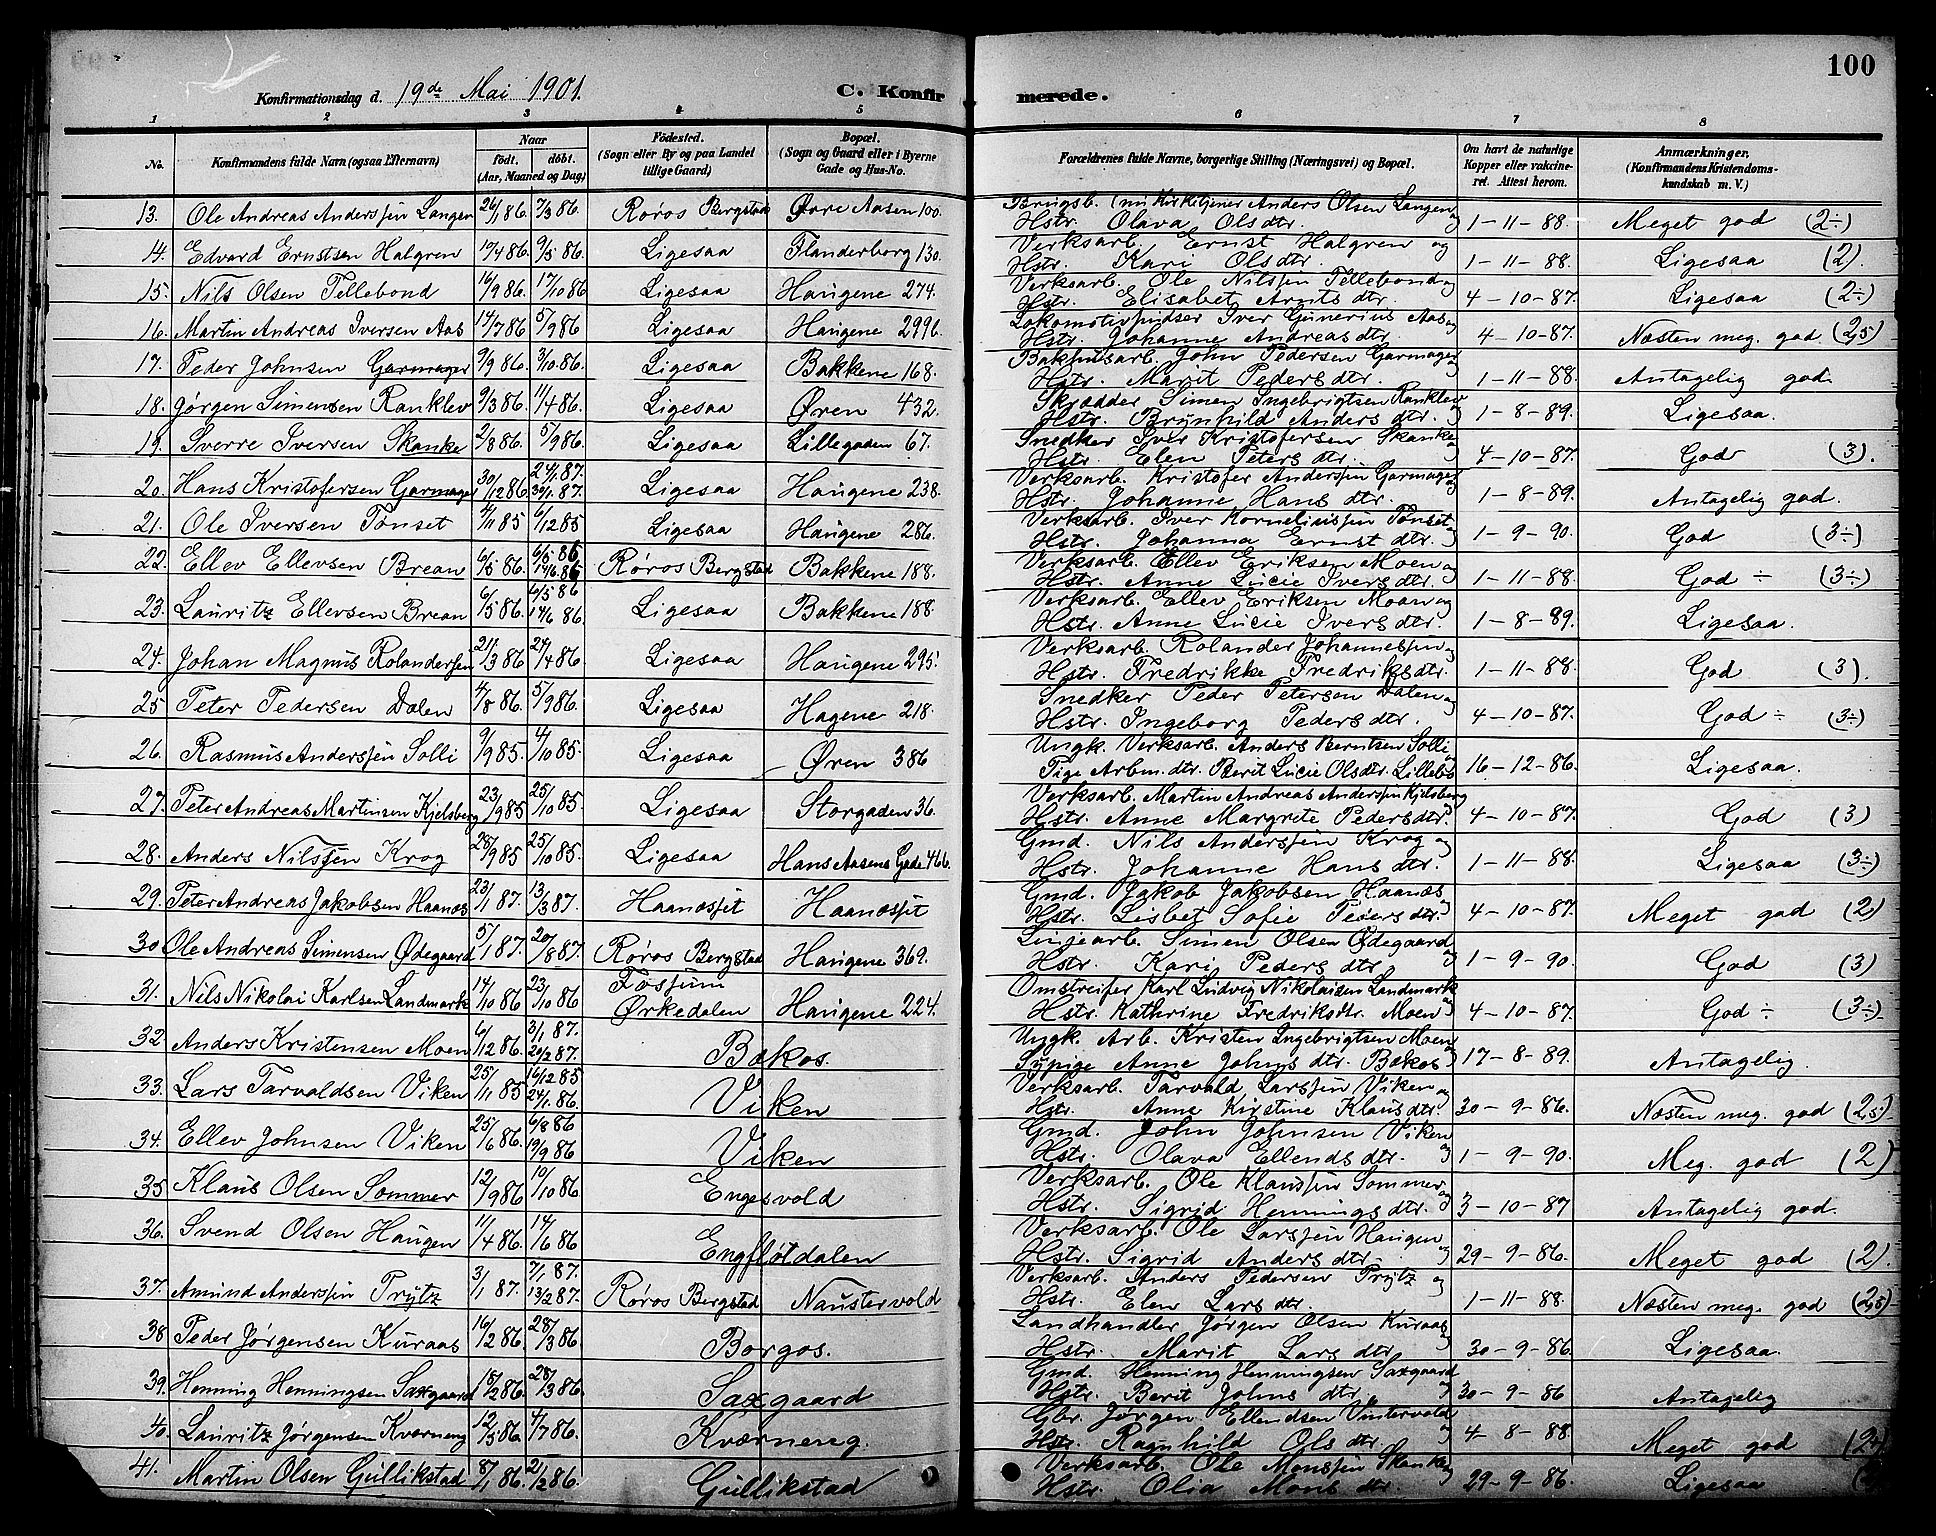 100
Konfirmationsdag d. 19de Mai 1901.
C. Konfirmerede.
1 2 3 4 5 6 7 8
No. Konfirmandens fulde Navn (ogsaa Efternavn) Naar født. døbt. (Aar, Maaned og Dag) Fødested. (Sogn eller By og paa Landet tillige Gaard) Bopæl. (Sogn og Gaard eller i Byerne Gade og Hus-No. Forældrenes fulde Navne, borgerlige Stilling (Næringsvei) og Bopæl. Om havt de naturlige Kopper eller vakcineret. Attest herom. Anmærkninger, (Konfirmandens Kristendomskundskab m. V.)
13. Ole Andreas Anderssen Langen 26/1 86. 7/3 86. Røros Bergstad Øvre Aasen 100. Brugsb. (nu Kirketjener Anders Olsen Langen og Hstr. Olava Olsdtr. 1-11-88. Meget god (2÷)
14. Edvard Ernstsen Halgren 10/4 86. 9/5 86. Ligesaa Flanderborg 130. Verksarb. Ernst Halgren og Hstr. Kari Olsdtr. 1-11-88. Ligesaa (2).
15. Nils Olsen Tellebond 16/9 86. 17/10 86 Ligesaa Haugene 274. Verksarb. Ole Nilssen Tellebond og Hstr. Elisabet Arntsdtr. 4-10-87. Ligesaa (2÷)
16. Martin Andreas Iversen Aas 14/7 86 5/9 86 Ligesaa Haugene 299b. Lokomotivpudser Iver Gunerius Aas og Hstr. Johanne Andreasdtr. 4-10-87. Næsten meg. god (2,5)
17. Peder Johnsen Garmager 9/9 86. 3/10 86. Ligesaa Bakkene 168. Bakhusarb. John Pedersen Garmager Hstr. Marit Pedersdtr. 1-11-88. Antagelig god.
18. Jørgen Simensen Ranklev 9/3 86. 11/4 86. Ligesaa Øren 432. Skrædder Simen Ingebrigtsen Ranklev Hstr. Brynhild Andersdtr. og 1-8-89. Ligesaa.
19. Sverre Iversen Skanke 2/8 86. 5/9 86. Ligesaa Lillegaden 67. Snedker Iver Kristofersen Skanke og Hstr. Elen Petersdtr. 4-10-87. God (3).
20. Hans Kristofersen Garmager 30/12 86 24/1 87. 30/1 87. Ligesaa Haugene 238. Verksarb. Kristofer Anderssen Garmager Hstr. Johanne Hansdtr. 1-8-89. Antagelig god.
21. Ole Iversen Tønset 4/11 85 6/12 85 Ligesaa Haugene 286. Verksarb. Iver Korneliussen Tønset Hstr. Johanna Ernstdtr. og 1-9-90. God (3÷)
22. Ellev Ellevsen Brean 6/5 86. 6/5 86 14/6 86 Røros Bergstad Bakkene 188. Verksarb. Ellev Eriksen Moen og Hstr. Anne Lucie Iversdtr. 1-11-88. God ÷ (3÷)
23. Lauritz Ellevsen Brean 6/5 86. 6/5 86 14/6 86. Ligesaa Bakkene 188. Verksarb. Ellev Eriksen Moen og Hstr. Anne Lucie Iversdtr. 1-8-89. Ligesaa.
24. Johan Magnus Rolandersen 21/3 86 27/4 86. Ligesaa Haugene 295. Verksarb. Rolander Johannessen og Hstr. Fredrikke Fredriksdtr. 1-11-88. God (3).
25 Peter Pedersen Dalen 4/8 86. 5/9 86. Ligesaa Hagene 218. Snedker Peder Petersen Dalen og Hstr. Ingeborg Pedersdtr. 4-10-87. God ÷ (3÷)
26. Rasmus Anderssen Solli 9/9 85. 4/10 85. Ligesaa Øren 386 Ungk. Verksarb. Anders Berntsen Solli Pige Arbm.dtr. Berit Lucie Olsdtr. Lillebo 16-12-86. Ligesaa.
27. Peter Andreas Martinsen Kjelsberg 23/9 85 25/10 85. Ligesaa Storgaden 36. Verksarb. Martin Andreas Anderssen Kjelsberg Hstr. Anne Margrete Pedersdtr. 4-10-87. God (3)
28. Anders Nilssen Krog 28/9 85 25/10 85. Ligesaa Hans Aasens Gade 466. Gmd. Nils Anderssen Krog og Hstr. Johanne Hansdtr. 1-11-88. Ligesaa (3÷)
29. Peter Andreas Jakobsen Haanæs 23/1 87. 13/3 87. Haanæsset Haanæsset Gmd. Jakob Jakobsen Haanæs Hstr. Lisbet Sofie Pedersdtr. 4-10-87. Meget god (2)
30. Ole Andreas Simensen Ødegaard 5/1 87. 20/8 87. Røros Bergstad Haugene 369. Linjearb. Simen Olsen Ødegaard Hstr. Kari Pedersdtr. og 1-9-90. God (3)
31. Nils Nikolai Karlsen Landmark 14/10 86 23/10 86 Fossum Ørkedalen Haugene 224. Omstreifer Karl Ludvig Nikolaisen Landmark Hstr. Kathrine Fredriksdtr. Moen 4-10-87. God ÷ (3÷)
32 Anders Kristensen Moen 6/12 86. 3/1 87. 20/2 87. Bækos. Ungk. Arb. Kristen Ingebrigtsen Moen Sypige Anne Johnsdtr. Bækos 17-8-89. Antagelig
33. Lars Tarvaldsen Viken 25/11 85 16/12 85 24/1 86. Viken Verksarb. Tarvald Larssen Viken og Hstr. Anne Kirstine Klausdtr. 30-9-86. Næsten meg. god (2,5)
34. Ellev Johnsen Viken 25/6 86. 6/8 86 19/9 86 Viken Gmd. John Johnsen Viken Hstr. Olava Ellendsdtr. og 1-9-90. Meg. god (2)
35. Klaus Olsen Sommer 12/9 86 10/10 86 Engesvold Verksarb. Ole Klaussen Sommer Hstr. Sigrid Henningsdtr. og 3-10-87 Antagelig god.
36. Svend Olsen Haugen 11/4 86. 14/6 86 Engfløtdalen Verksarb. Ole Larssen Haugen Hstr. Sigrid Andersdtr. og 29-9-86. Meget god (2).
37. Amund Anderssen Prytz 3/1 87. 7/1 87. 13/2 87. Røros Bergstad Naustervold Verksarb. Anders Pedersen Prytz og Hstr. Elen Larsdtr. 1-11-88. Næsten meg. god (2,5)
38 Peder Jørgensen Kuraas 16/2 86. 28/3 86. Borgos. Landhandler Jørgen Olsen Kuraas Hstr. Marit Larsdtr. og 30-9-86. Ligesaa.
39. Henning Henningsen Saxgaard 18/2 86. 28/3 86. Saxgaard Gmd. Henning Henningsen Saxgaard Hstr. Berit Johnsdtr. og 30-9-86 Antagelig
40. Lauritz Jørgensen Kværneng 12/5 86. 4/7 86. Kværneng. Gbr. Jørgen Ellendsen Vintervold Hstr. Ragnhild Olsdtr. og 4-8-88. Meget god
41. Martin Olsen Gullikstad 8/1 86. 21/2 86. Gullikstad Verksarb. Ole Monssen Skanke Hstr. Olia Monsdtr. 29-9-86. Ligesaa